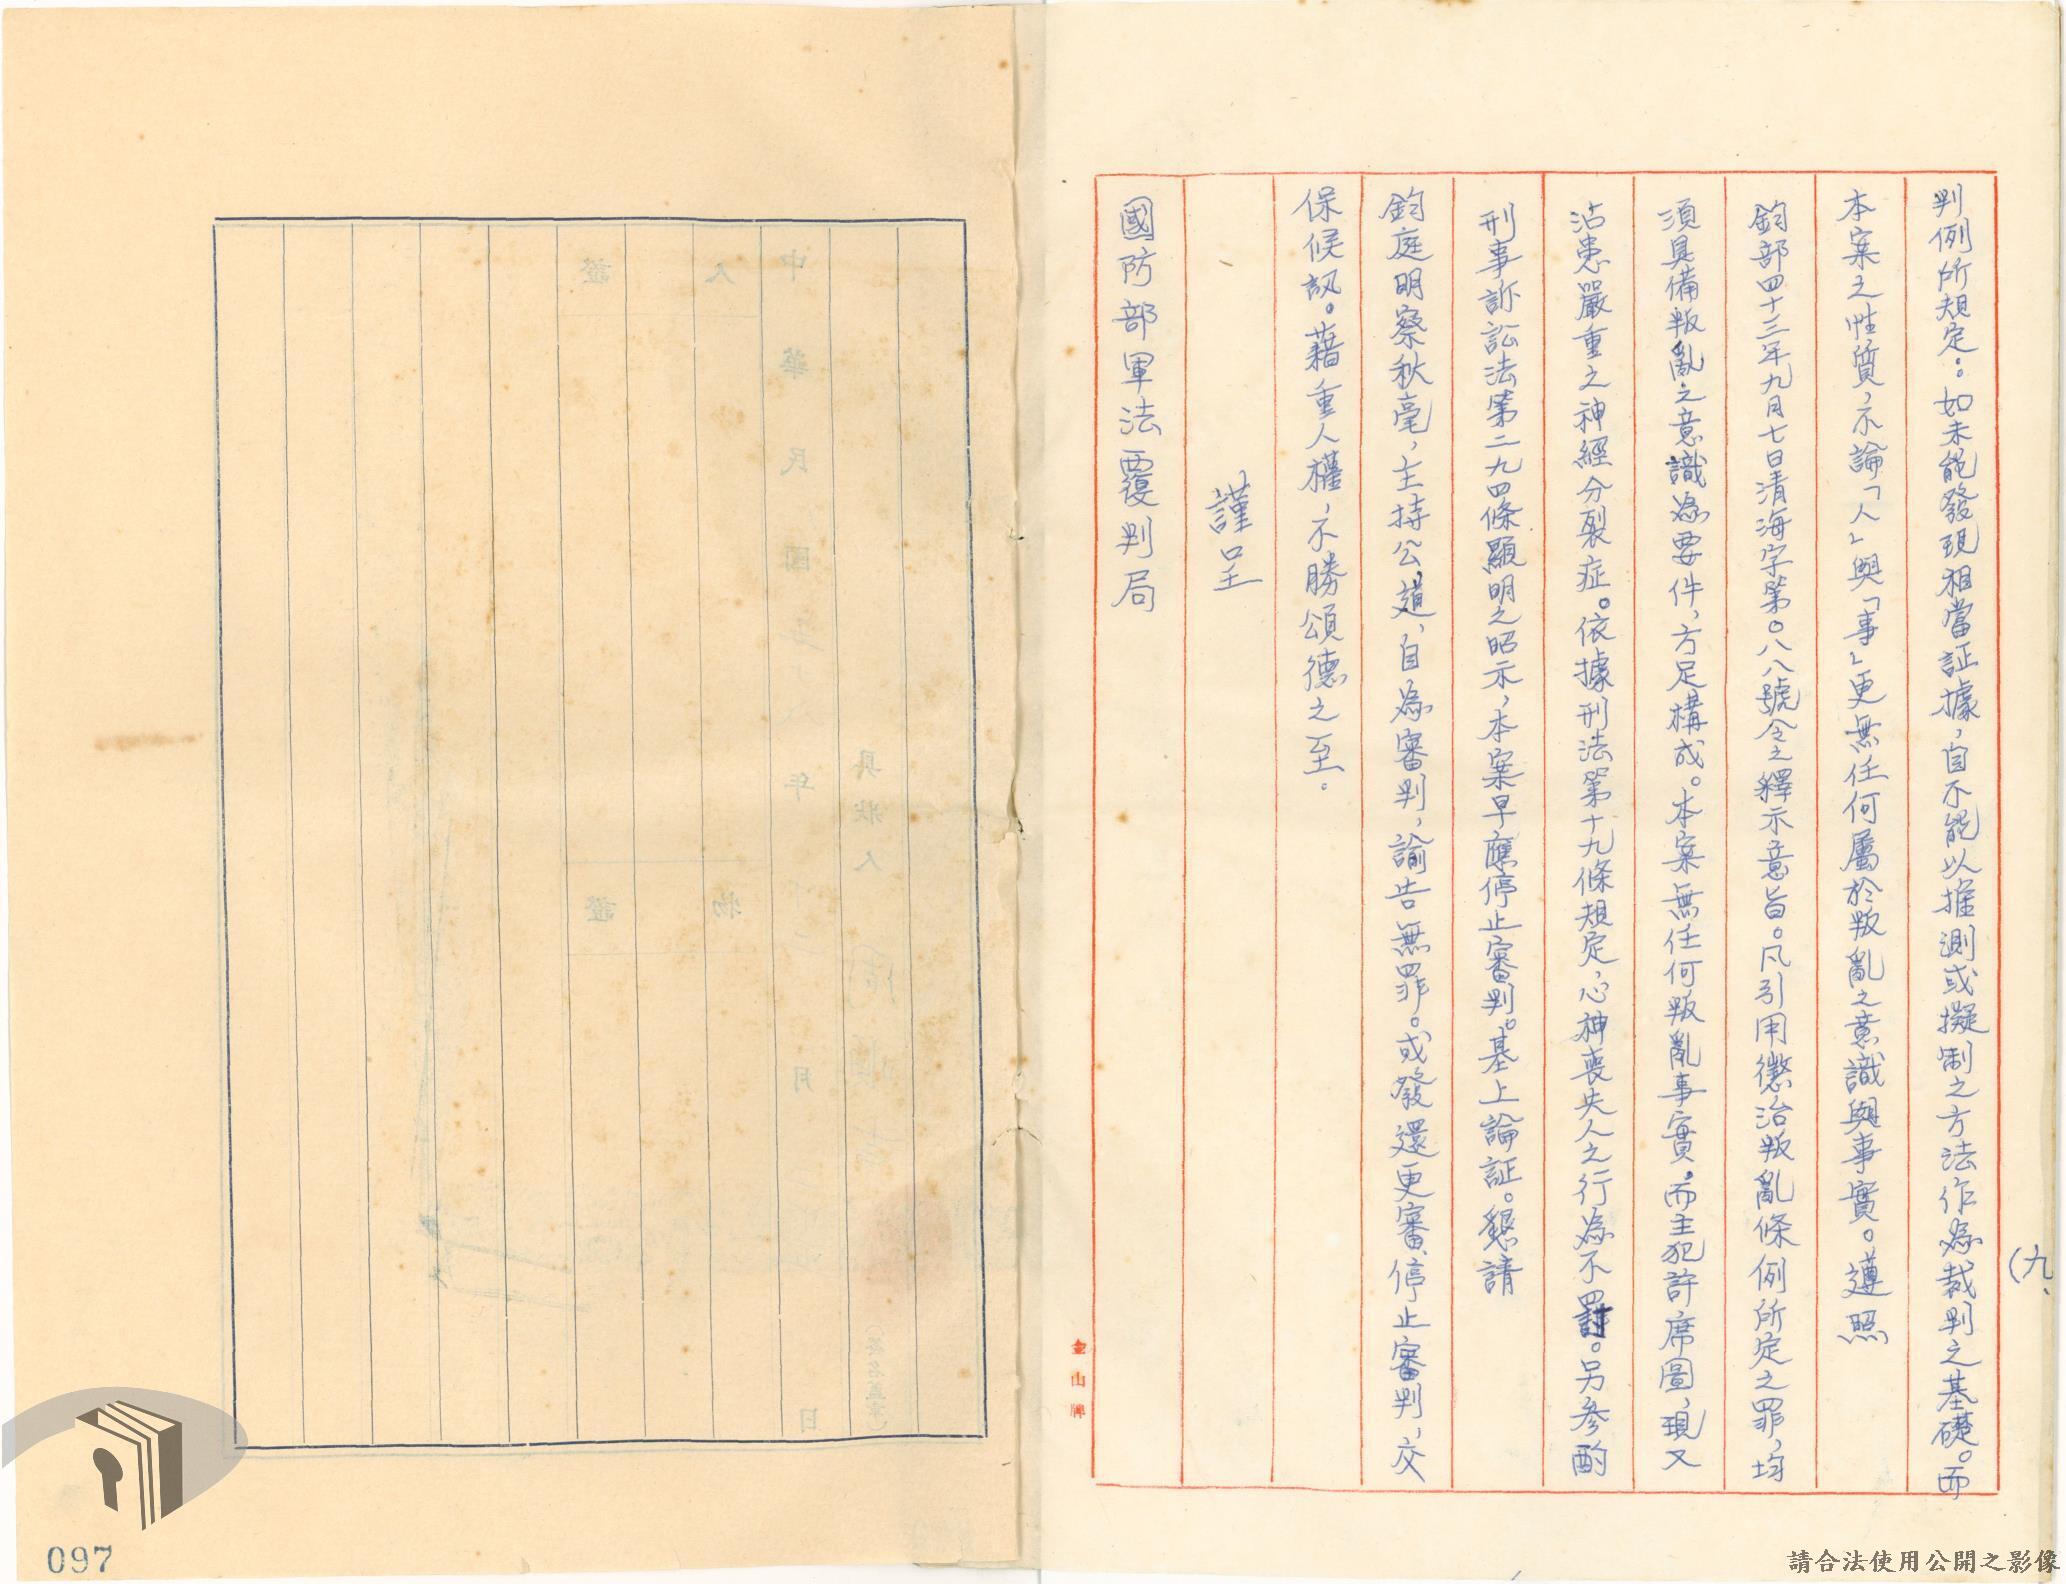 (九、
判例所規定：如未能發現相當証據，自不能以推測或擬制之方法作為裁判之基礎。而
本案之性質，不論「人」與「事」更無任何屬於叛亂之意識與事實。遵照
鈞部四十三年九月七日清海字第〇八八號令之釋示意旨。凡引用懲治叛亂條例所定之罪，均
須具備叛亂之意識為要件，方足構成。本案無任何叛亂事實。而主犯許席圖，現又
沾患嚴重之神經分裂症。依據刑法第十九條規定，心神喪失人之行為不罰。另參酌
刑事訴訟法第二九四條顯明之昭示，本案早應停止審判。基上論証。懇請
鈞庭明察秋毫，主持公道，自為審判，諭告無罪。或發還更審，停止審判，交
保候訊。藉重人權，不勝頌德之至。
謹呈
國防部軍法覆判局
金山牌
具狀人
(簽名蓋章)
中華民國 年 月 日
人 物
證 證
097
請合法使用公開之影像